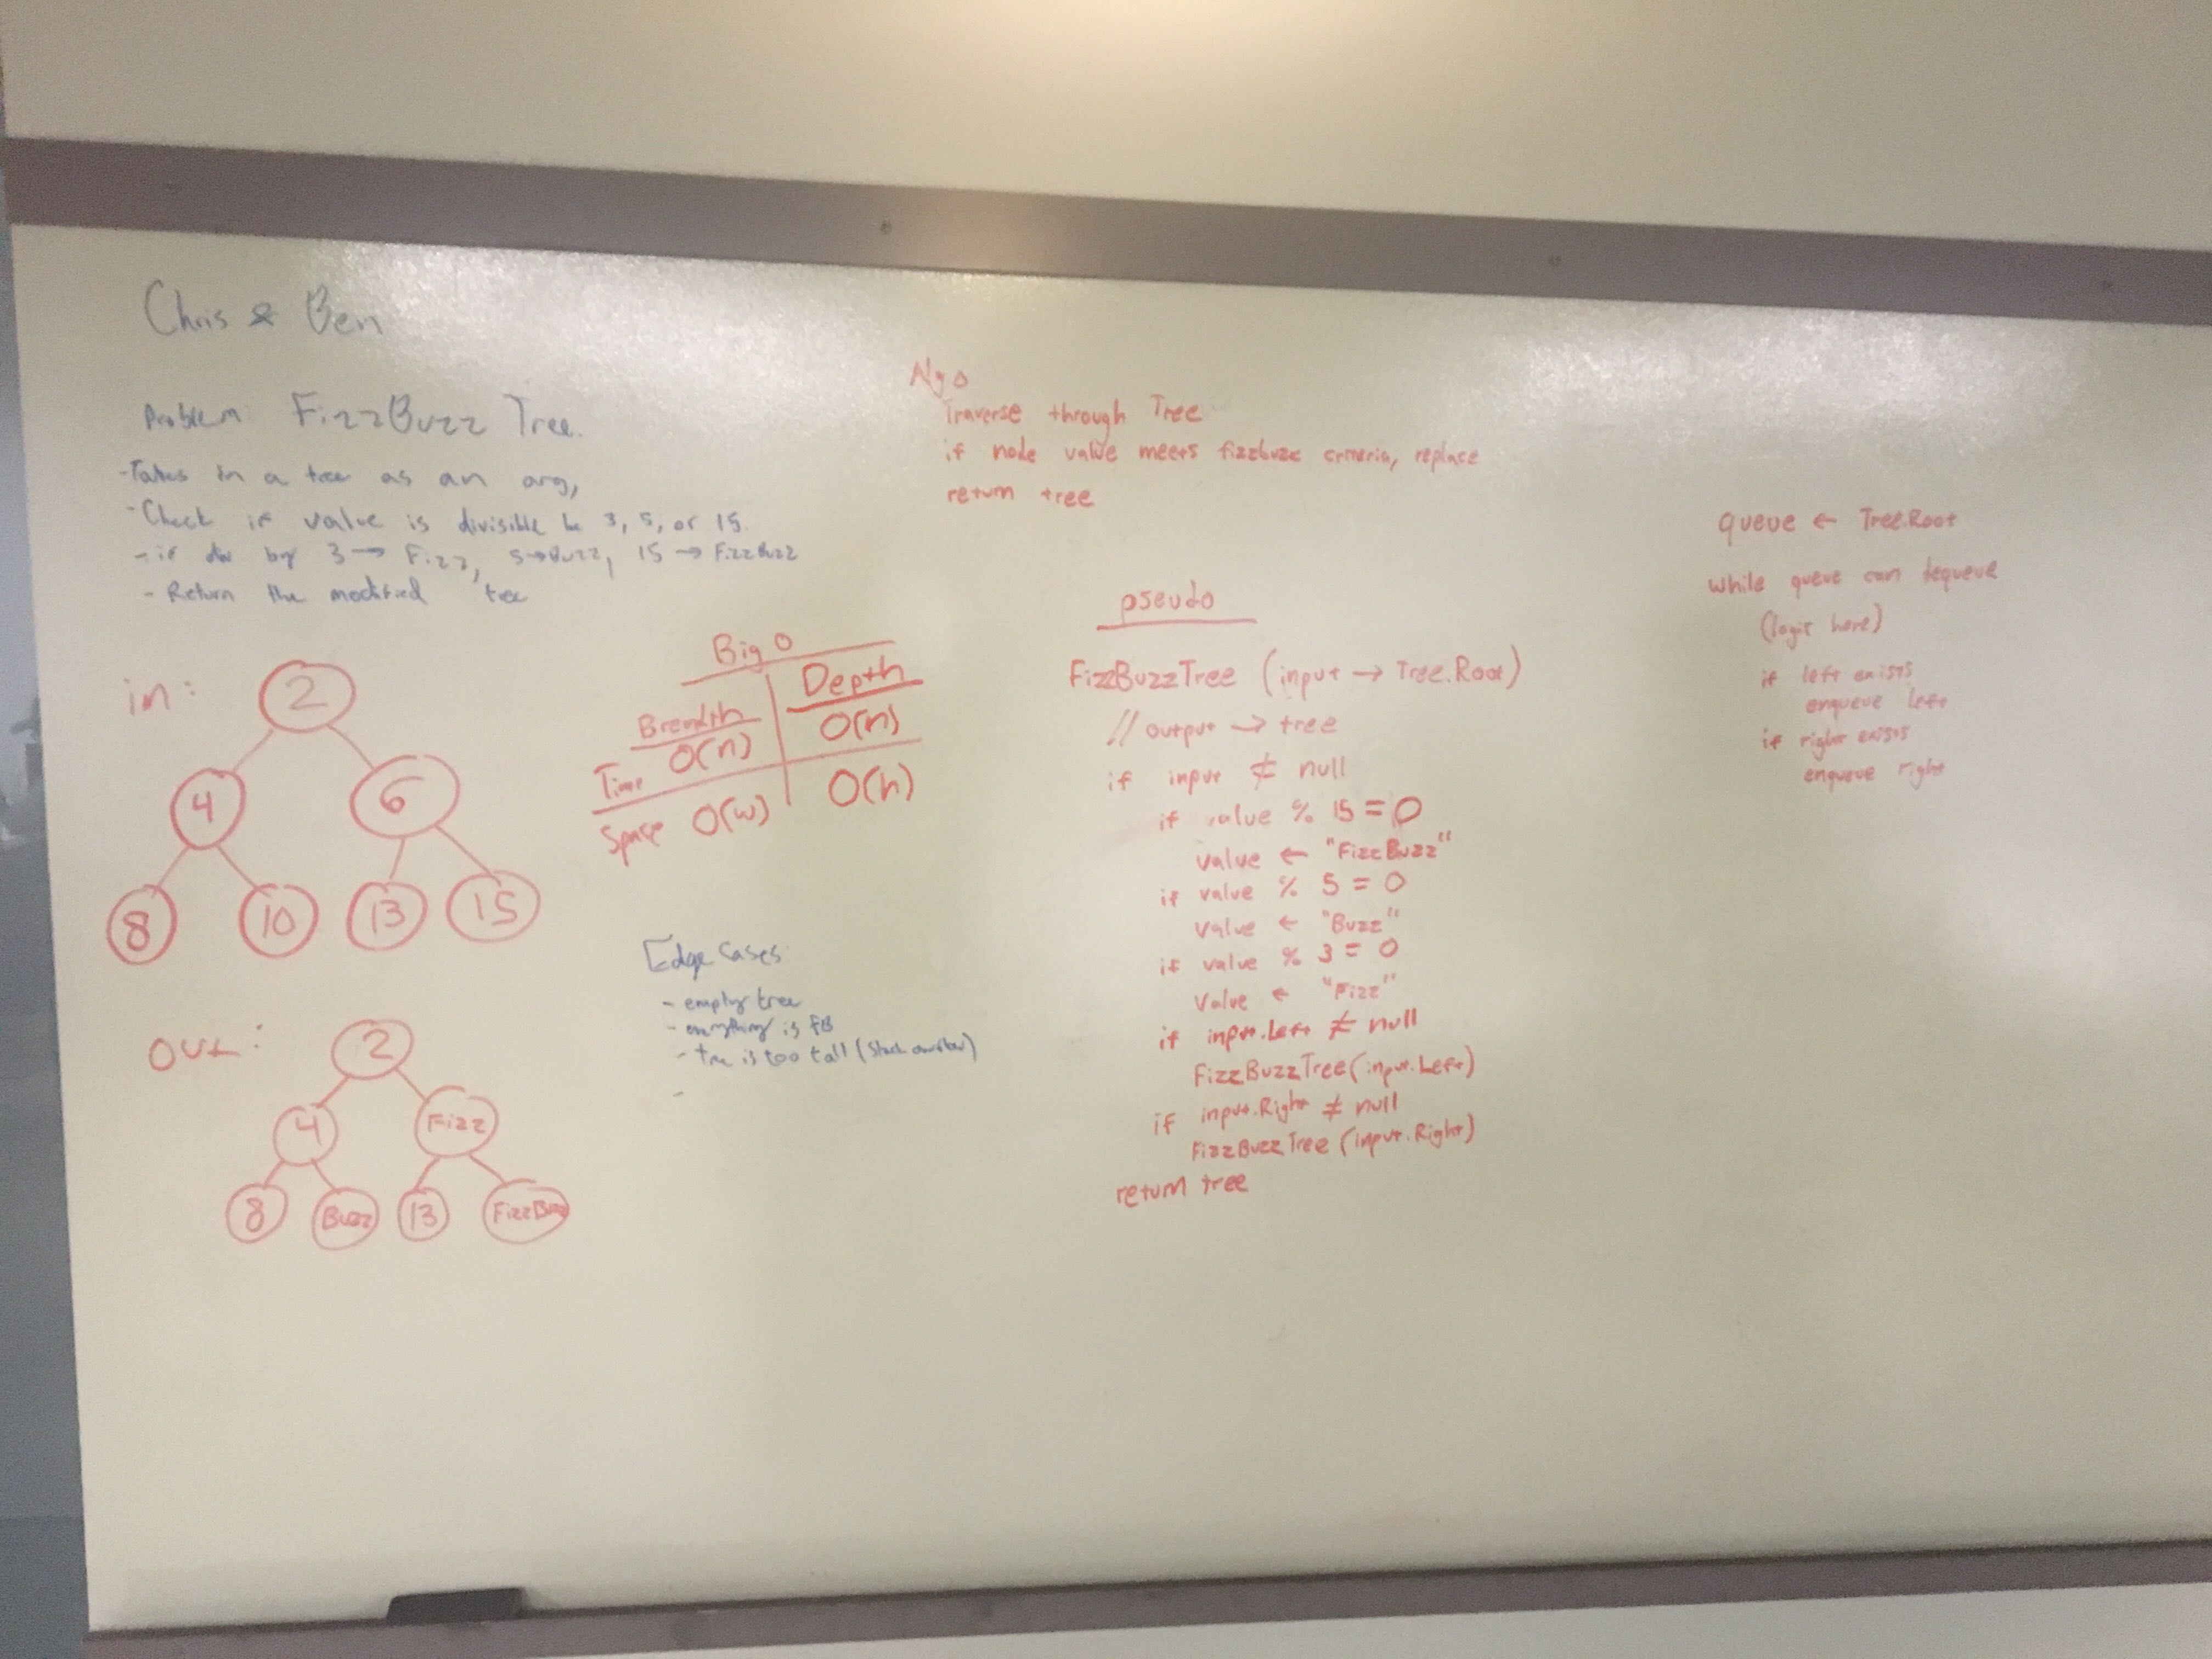 Chris & Ben
Problem: FizzBuzz Tree.
- Takes in a tree as an arg,
- Check if value is divisible be 3, 5, or 15.
- if div by 3 → Fizz, 5→Buzz, 15 → FizzBuzz
- Return the modified tree
in:
2
4 6
8 10 13 15
Out:
2
4 Fizz
8 Buzz 13 FizzBuzz
Big O
Breadth Depth
Time O(n) O(n)
Space O(w) O(h)
Edge Cases:
- empty tree
- everything is FB
- tree is too tall (Stack overflow)
-
Algo
Traverse through Tree
if node value meets fizzbuzz criteria, replace
return tree
pseudo
FizzBuzzTree (input → Tree.Root)
// output → tree
if input ≠ null
if value % 15 = 0
value ← "FizzBuzz"
if value % 5 = 0
value ← "Buzz"
if value % 3 = 0
value ← "Fizz"
if input.Left ≠ null
FizzBuzzTree(input.Left)
if input.Right ≠ null
FizzBuzzTree (input.Right)
return tree
queue ← Tree.Root
while queue can dequeue
(logic here)
if left exists
enqueue left
if right exists
enqueue right